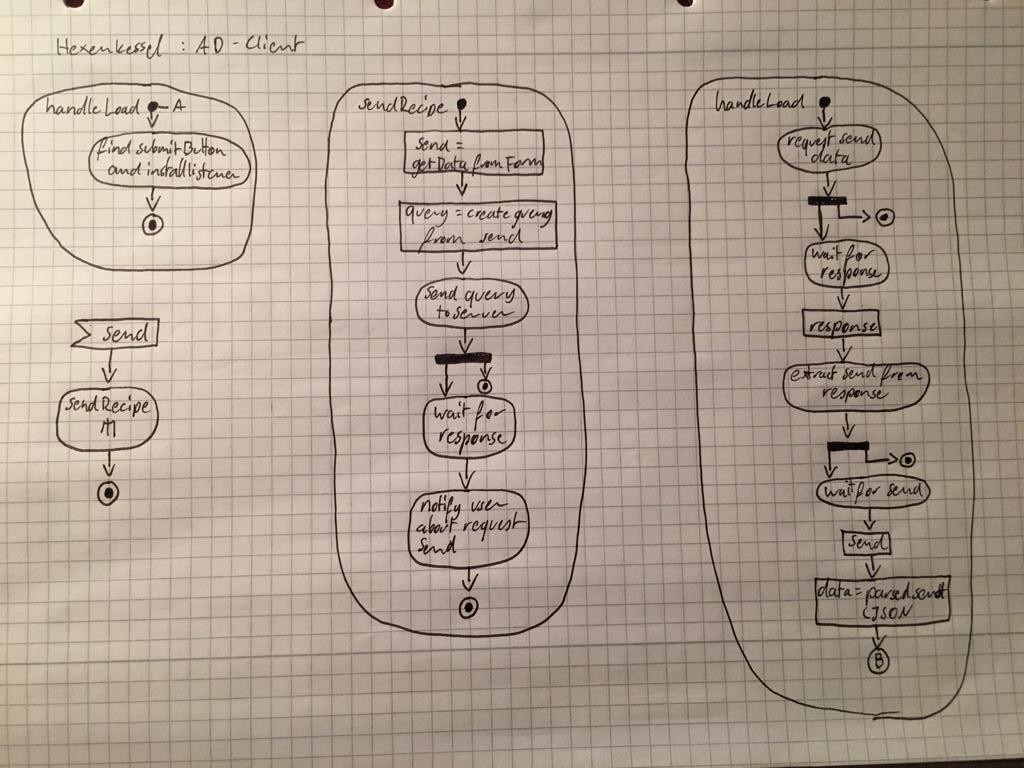 Hexenkessel : AD - Client
handleLoad
A
find submitButton
and install listener
send
sendRecipe
sendRecipe
send =
getData from Form
query = create query
from send
send query
to server
wait for
response
notify user
about request
send
handleLoad
request send
data
wait for
response
response
extract send from
response
wait for send
send
data = parsed send
(JSON
B